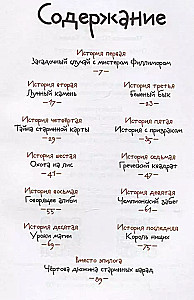 Содержание
История первая
Загадочный случай с мистером Филлимором
-7-
История вторая
Лунный камень
-17-
История третья
Бежный Бык
-23-
История четвёртая
Тайна старинной карты
-29-
История пятая
История с призраком
-35-
История шестая
Охота на лис
-41-
История седьмая
Греческий квадрат
-47-
История восьмая
Говорящее алиби
-55-
История девятая
Чемпионский забег
-61-
История десятая
Уроки магии
-69-
История последняя
Король нищих
-75-
Вместо эпилога
Чёртова дюжина старинных шарад
-89-